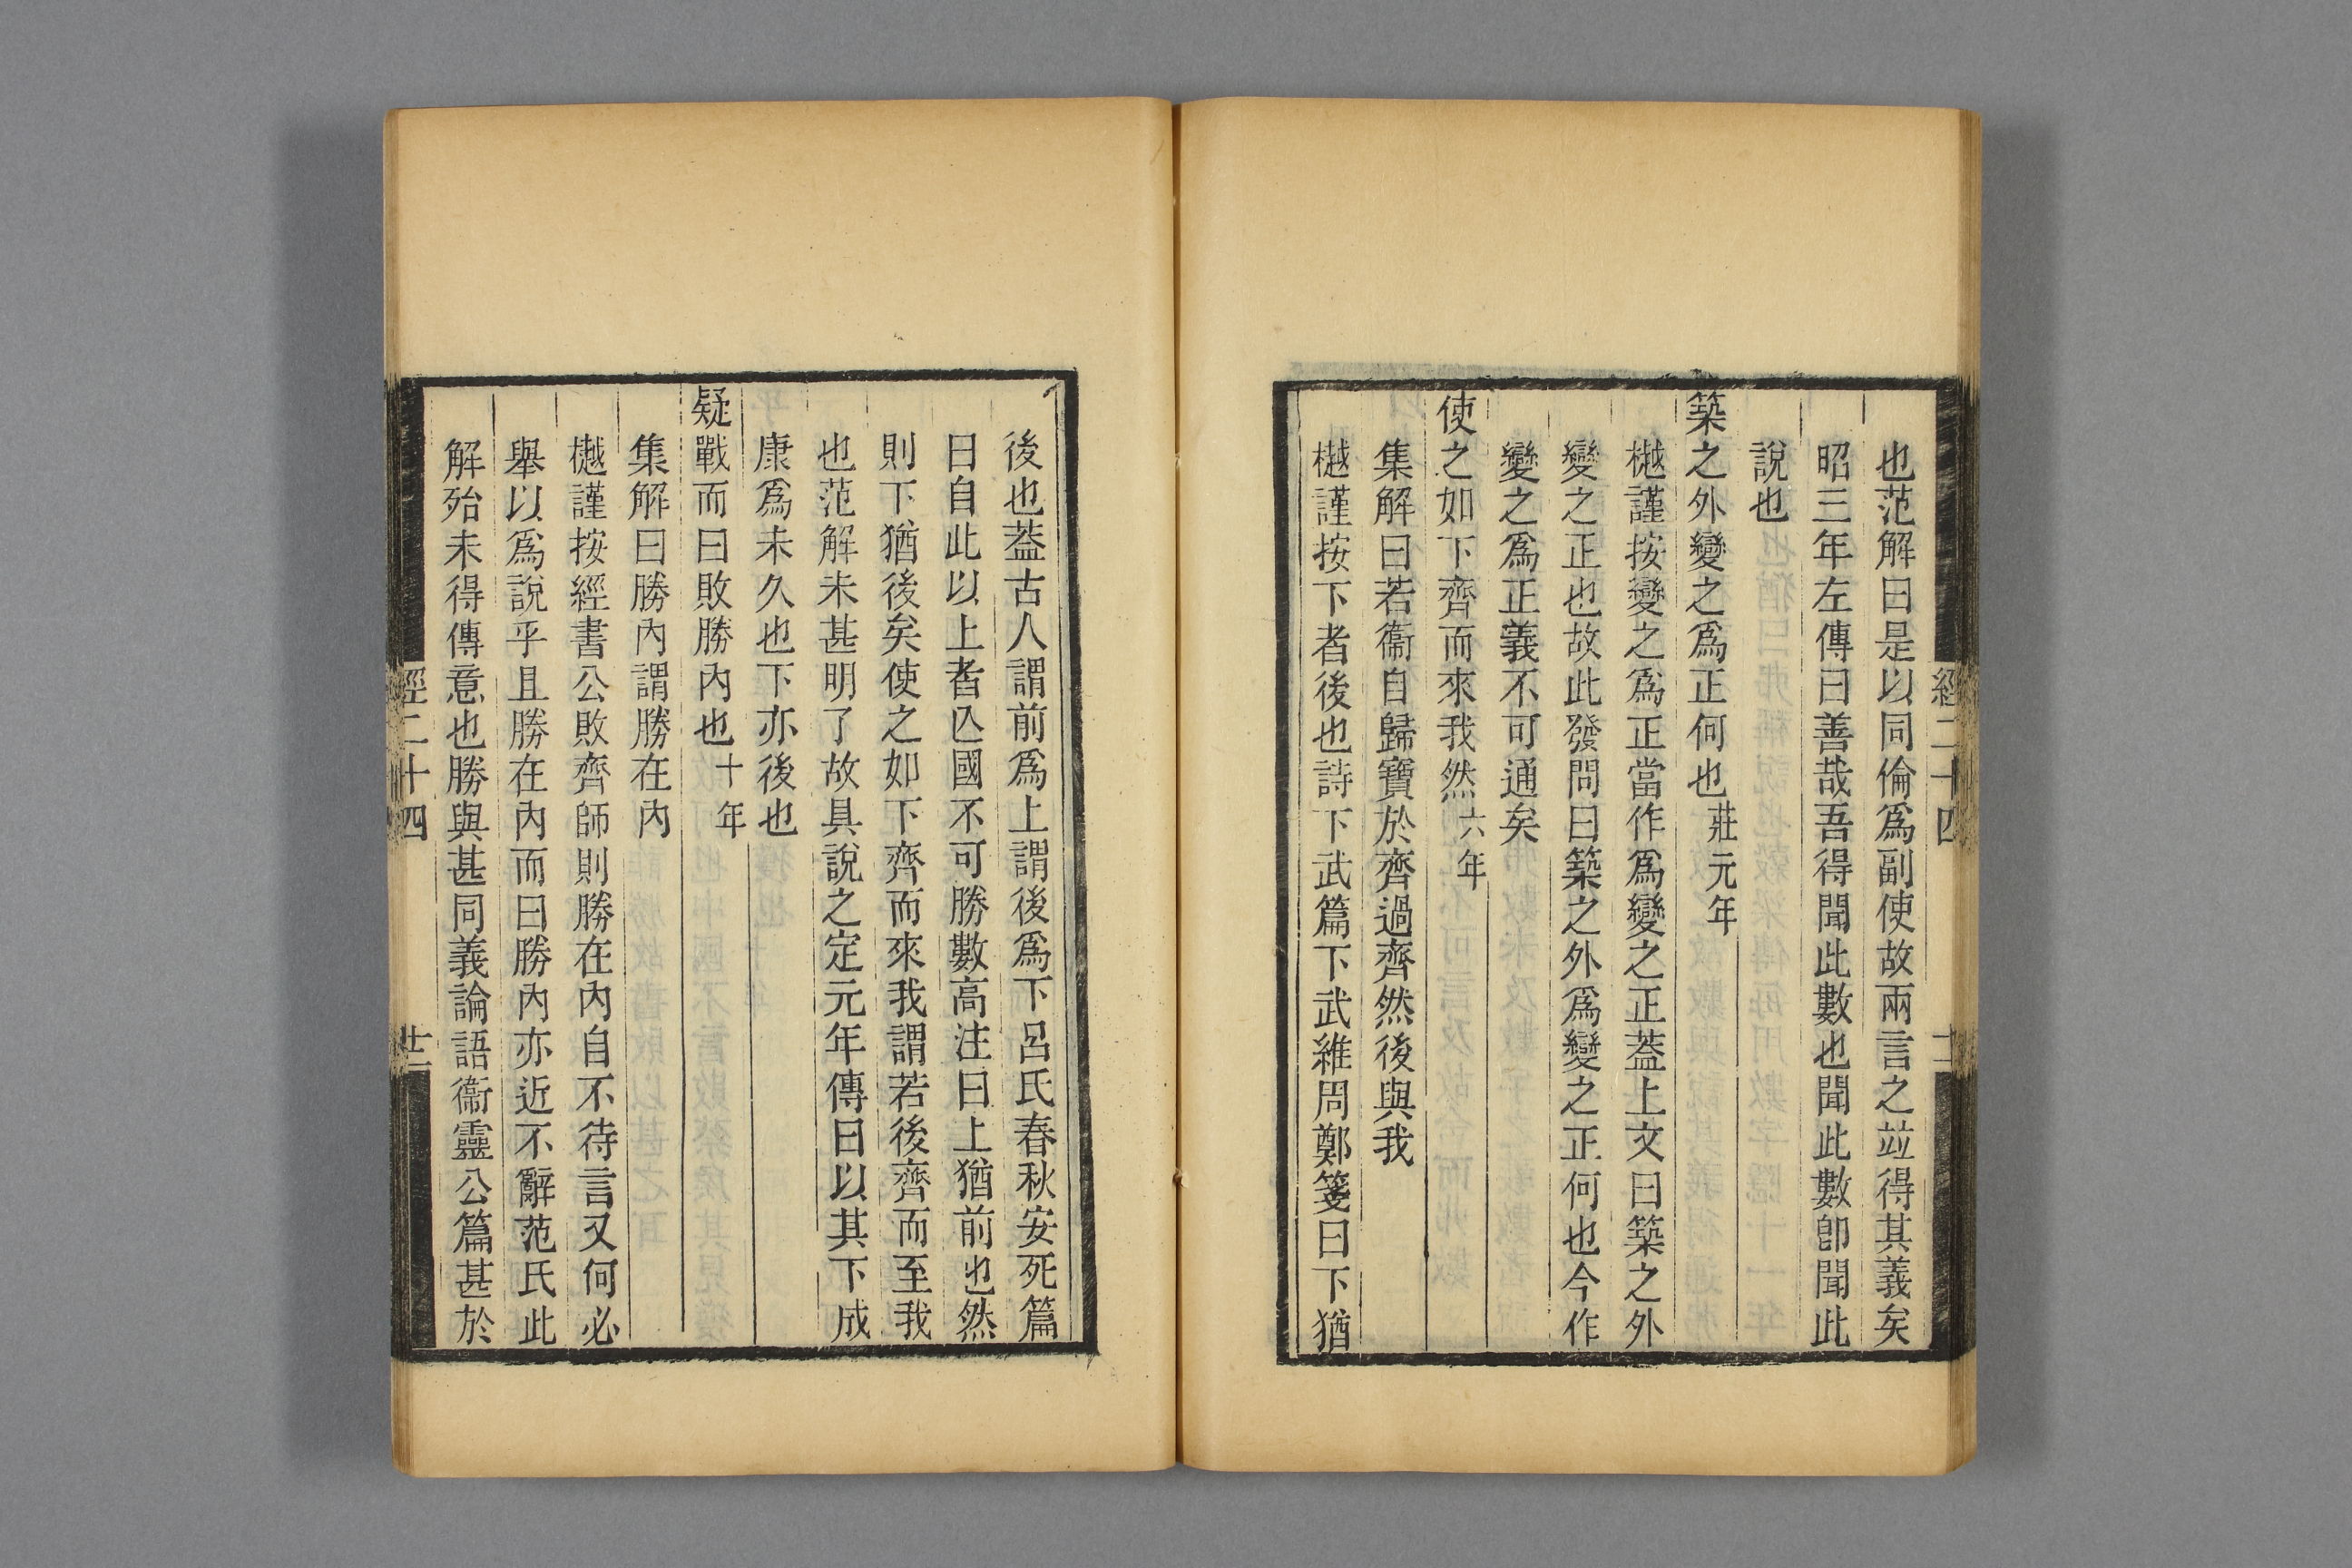 也范解曰是以同倫爲副使故兩言之竝得其義矣
昭三年左傳曰善哉吾得聞此數也聞此數卽聞此
說也
築之外變之爲正何也莊元年
樾謹按變之爲正當作爲變之正葢上文曰築之外
變之正也故此發問曰築之外爲變之正何也今作
變之爲正義不可通矣
使之如下齊而來我然六年
集解曰若衞自歸寶於齊過齊然後與我
樾謹按下者後也詩下武篇下武維周鄭箋曰下猶
後也葢古人謂前爲上謂後爲下呂氏春秋安死篇
曰自此以上者亾國不可勝數高注曰上猶前也然
則下猶後矣使之如下齊而來我謂若後齊而至我
也范解未甚明了故具說之定元年傳曰以其下成
康爲未久也下亦後也
疑戰而曰敗勝內也十年
集解曰勝內謂勝在內
樾謹按經書公敗齊師則勝在內自不待言又何必
舉以爲說乎且勝在內而曰勝內亦近不辭范氏此
解殆未得傳意也勝與甚同義論語衞靈公篇甚於
經二十四
廿二